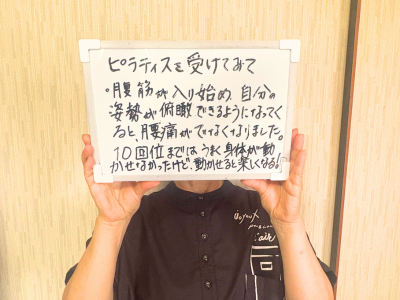 ピラティスを受けてみて
・腹筋が入り始め、自分の
姿勢が俯瞰できるようになってく
ると、腰痛がでなくなりました。
10回位までは、うまく身体が動
かせなかったけど、動かせると楽しくなる!